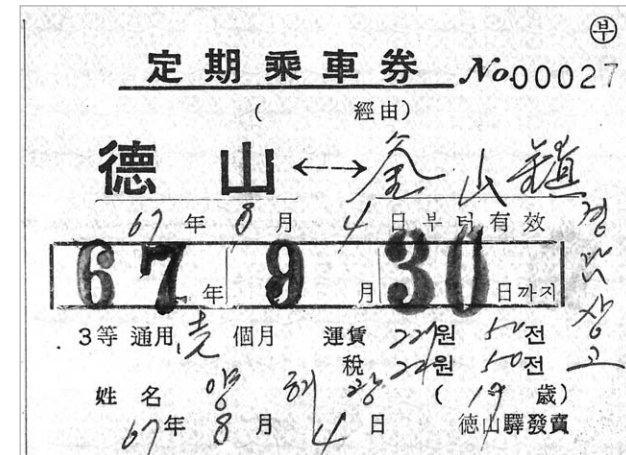 부
定期乗車券 No.00027
( 經由)
德山 ←→ 釜山鎭
67年 8月 4日부터有效
67年 9月 30日까지
3等 通用 壱 個月 運賃 221원 50전
稅 22원 50전
姓名 양 ( 19 歲)
67年 8月 4日 德山驛發賣